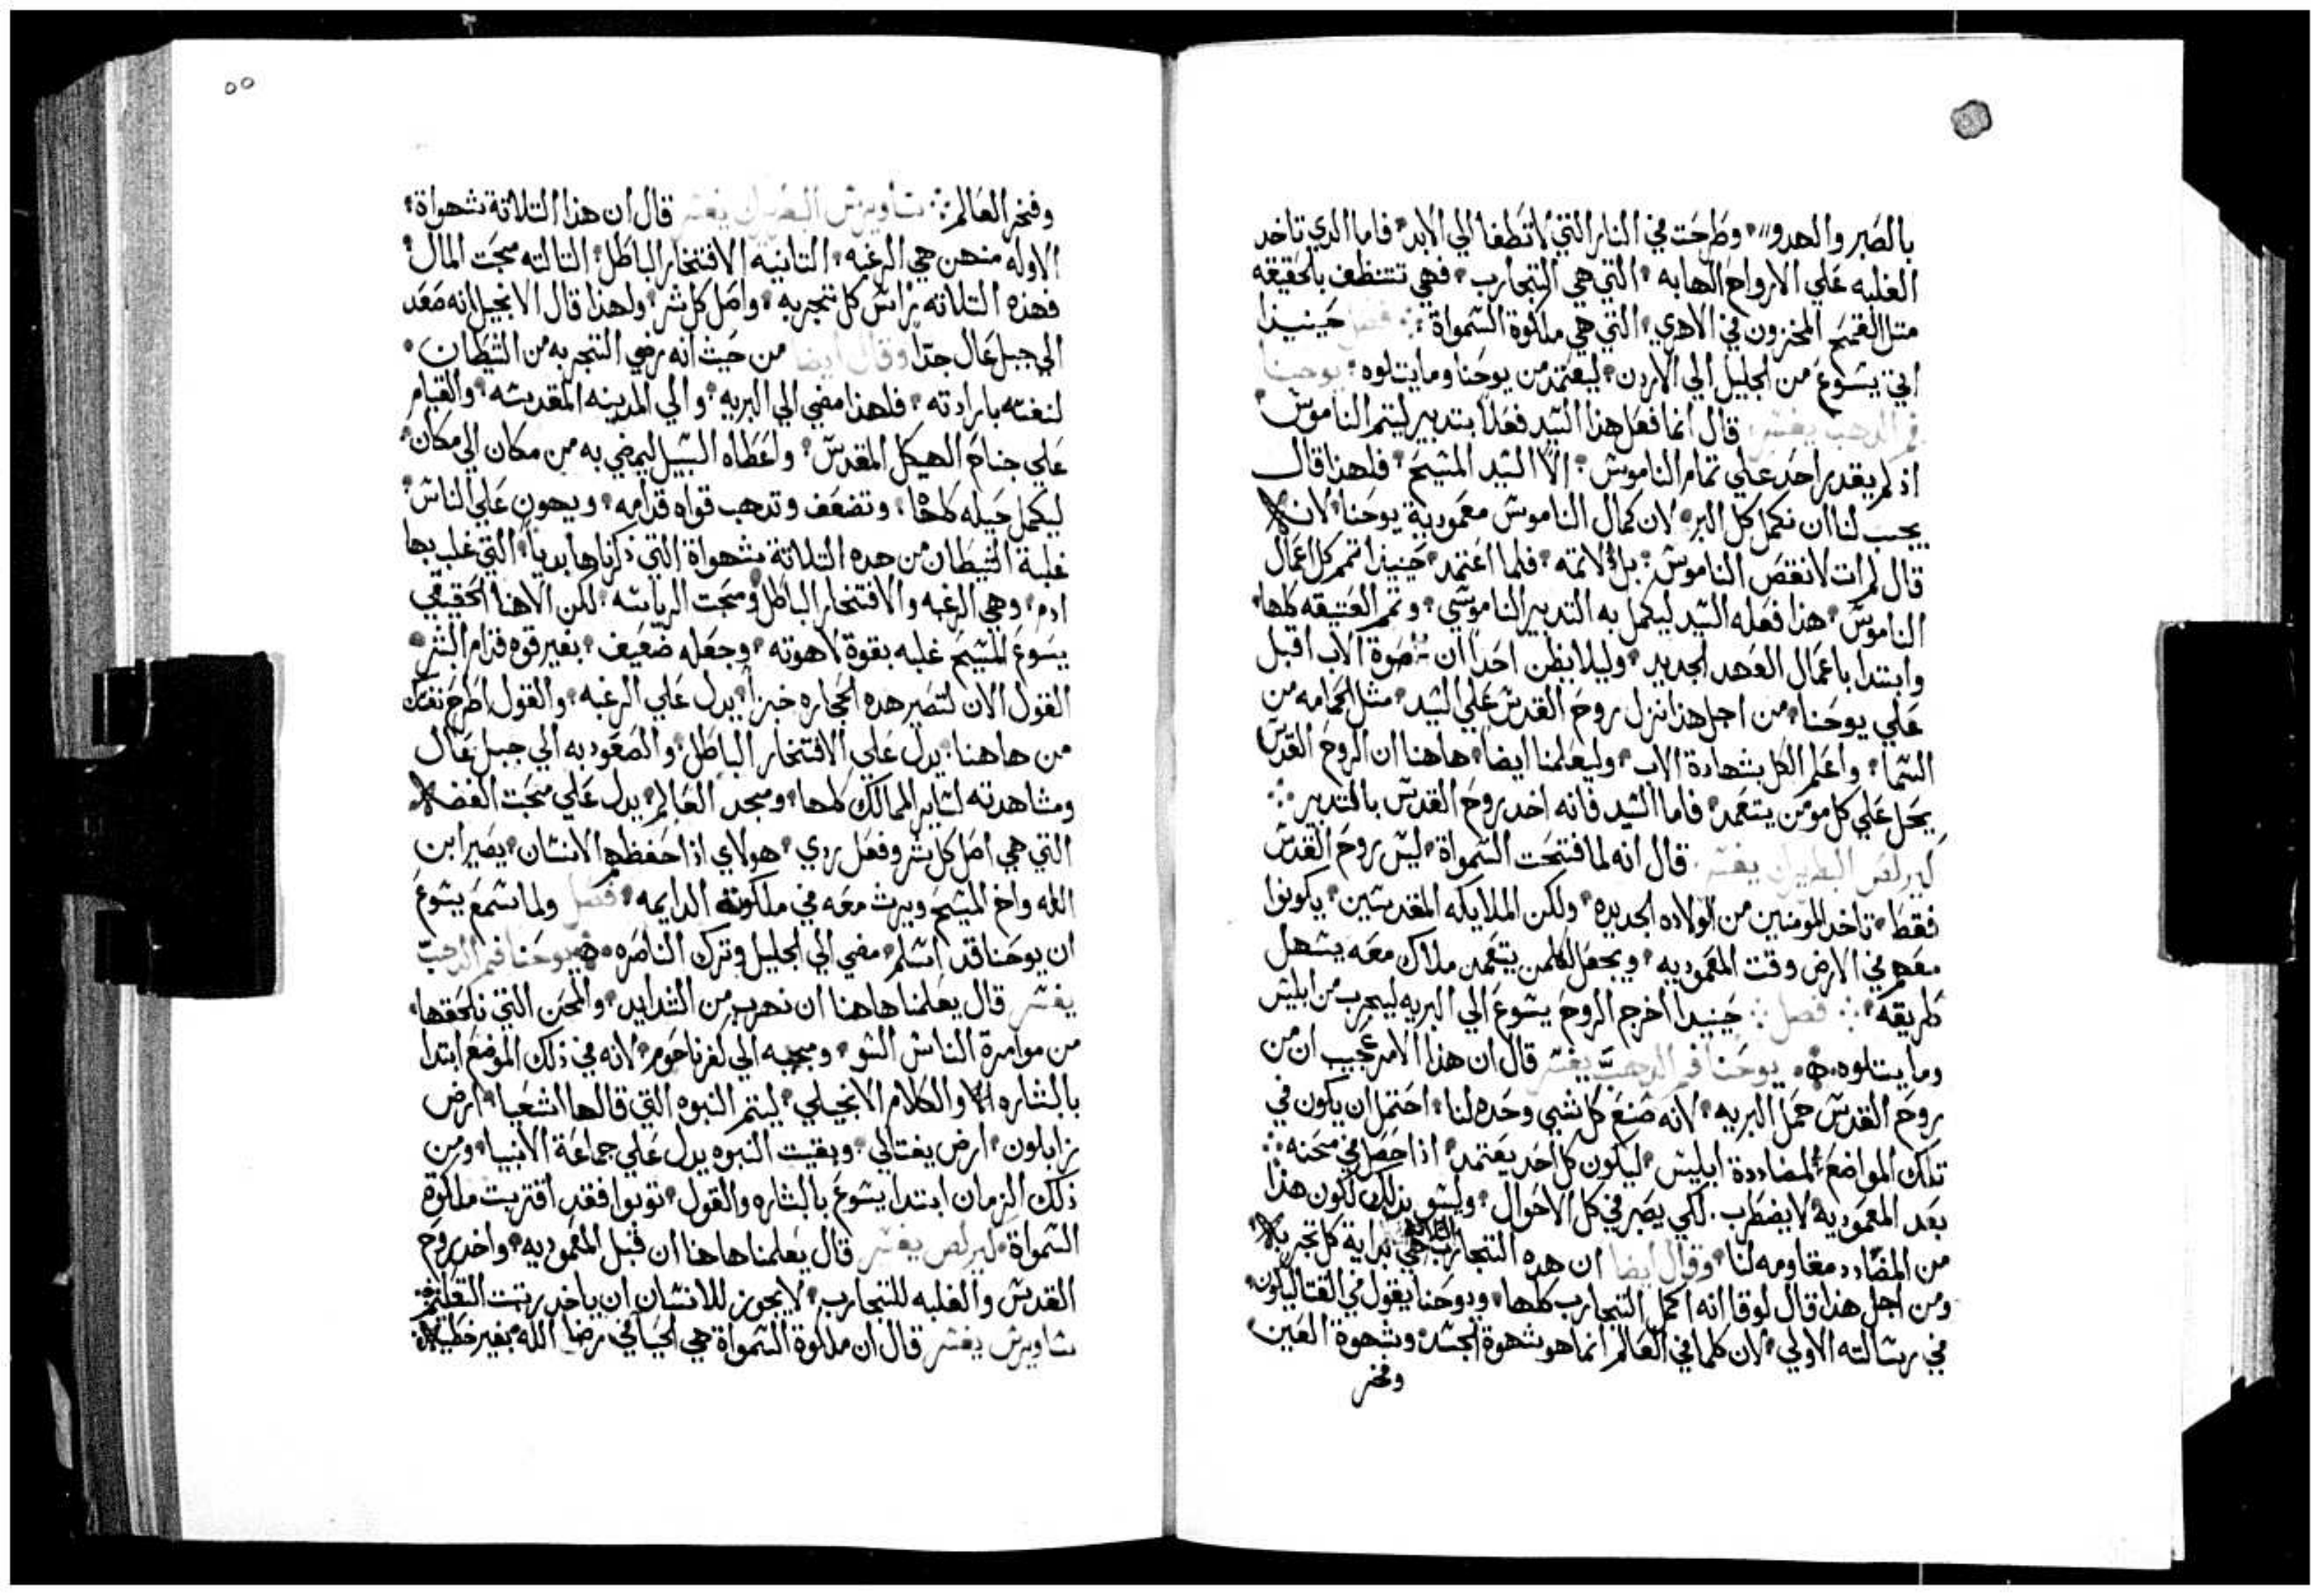 بالصبر والهدو وطرحت في النار التي لا تطفا الي الابد فاما الدي تاخد
الغلبه علي الارواح الهابه التي هي التجارب فهي تتنظف بالحقيقه
متل القمح المخزون في الاهري التي هي ملكوة السمواة فصل حينيدا
اتي يسوع من الجليل الي الاردن ليعتمد من يوحنا وما يتلوه يوحنا
فم الدهب يفسر قال انما فعل هدا السيد فعلا بتدبير ليتم الناموس
اد لم يقدر احد علي تمام الناموس الا السيد المسيح فلهدا قال
يجب لنا ان نكمل كل البر لان كمال الناموس معمودية يوحنا لانه
قال لم ات لانقص الناموس بل لاتمه فلما اعتمد حينيدا تمم كل اعمال
الناموس هدا فعله السيد ليكمل به التدبير الناموسي وتم العتيقه كلها
وابتدا باعمال العهد الجديد وليلا يظن احدا ان صوة الاب اقبل
علي يوحنا من اجل هدا نزل روح القدس علي السيد مثل الحمامه من
السما واعلم الكل بشهادة الاب وليعلمنا ايضا هاهنا ان الروح القدس
يحل علي كل مومن يتعمد فاما السيد فانه اخد روح القدس بالتدبير
كيرلص البطريرك يفسر قال انه لما فتحت السمواة ليس روح القدس
فقط تاخد المومنين من الولاده الجديده ولكن الملايكه المقدسين يكونوا
معهم في الارض وقت المعموديه ويجعل لكلمن يتعمد ملاك معه يسهل
طريقه فصل حينيدا اخرج الروح يسوع الي البريه ليجرب من ابليس
وما يتلوه يوحنا فم الدهب يفسر قال ان هدا الامر عجيب ان من
روح القدس حمل البريه لانه صنع كل شي وحده لنا احتمل ان يكون في
تلك المواضع لمضاددة ابليس ليكون كل احد يعتمد ادا حصل في محنه
بعد المعموديه لا يضطرب لكي يصبر في كل الاحوال وليس بدلك لكون هدا
من المضادد مقاومه لنا وقال ايضا ان هده التجارب هي براية كل تجربه
ومن اجل هدا قال لوقا انه اكمل التجارب كلها ويوحنا يقول في القتاليكون
في رسالته الاولي لان كلما في العالم انما هو شهوة الجسد وشهوة العين
وفخر
٥٥
وفخر العالم ساويرس البطريرك يفسر قال ان هدا التلاتة شهواة
الاوله منهن هي الرغبه التانيه الافتخار الباطل التالته محبت المال
فهده التلاته راس كل تجربه واصل كل شر ولهدا قال الانجيل انه صعد
الي جبل عال جدا وقال ايضا من حيث انه رضي التجربه من الشيطان
لنفسه بارادته فلهدا مضي الي البريه والي المدينه المقدسه والقيام
علي جناح الهيكل المقدس واعطاه السبيل ليمضي به من مكان الي مكان
ليكمل حيله كلها وتضعف وتدهب قواه قدامه ويهون علي الناس
غلبة الشيطان من هده التلاتة شهواة التي دكرناها بديا التي غلب بها
ادم وهي الرغبه والافتخار الباطل ومحبت الرياسه لكن الاهنا الحقيقي
يسوع المسيح غلبه بقوة لاهوته وجعله ضعيف بغير قوه قدام البشر
القول الان لتصير هده الحجاره خبزا يدل علي الرغبه والقول اطرح نفسك
من هاهنا يدل علي الافتخار الباطل والصعود به الي جبل عال
ومشاهدته لساير الممالك كلها ومجد العالم يدل علي محبت الفضه
التي هي اصل كل شر وفعل ردي هولاي ادا حفظهم الانسان يصير ابن
الله واخ المسيح ويرث معه في ملكوته الدايمه فصل ولما سمع يسوع
ان يوحنا قد اسلم مضي الي الجليل وترك الناصره يوحنا فم الدهب
يفسر قال يعلمنا هاهنا ان نهرب من الشدايد والمحن التي تلحقها
من موامرة الناس السو ومجيه الي كفرناحوم لانه في دلك الموضع ابتدا
بالبشاره والكلام الانجيلي ليتم النبوه التي قالها اشعيا ارض
زابلون ارض يفتالي وبقيت النبوه يدل علي جماعة الانبيا ومن
دلك الزمان ابتدا يسوع بالبشاره والقول توبوا فقد اقتربت ملكوة
السمواة كيرلص يفسر قال يعلمنا هاهنا ان قبل المعموديه واخد روح
القدس والغلبه للتجارب لا يجوز للانسان ان ياخد رتبت التعليم
ساويرس يفسر قال ان ملكوة السمواة هي الحيا في رضا الله بغير خطيه